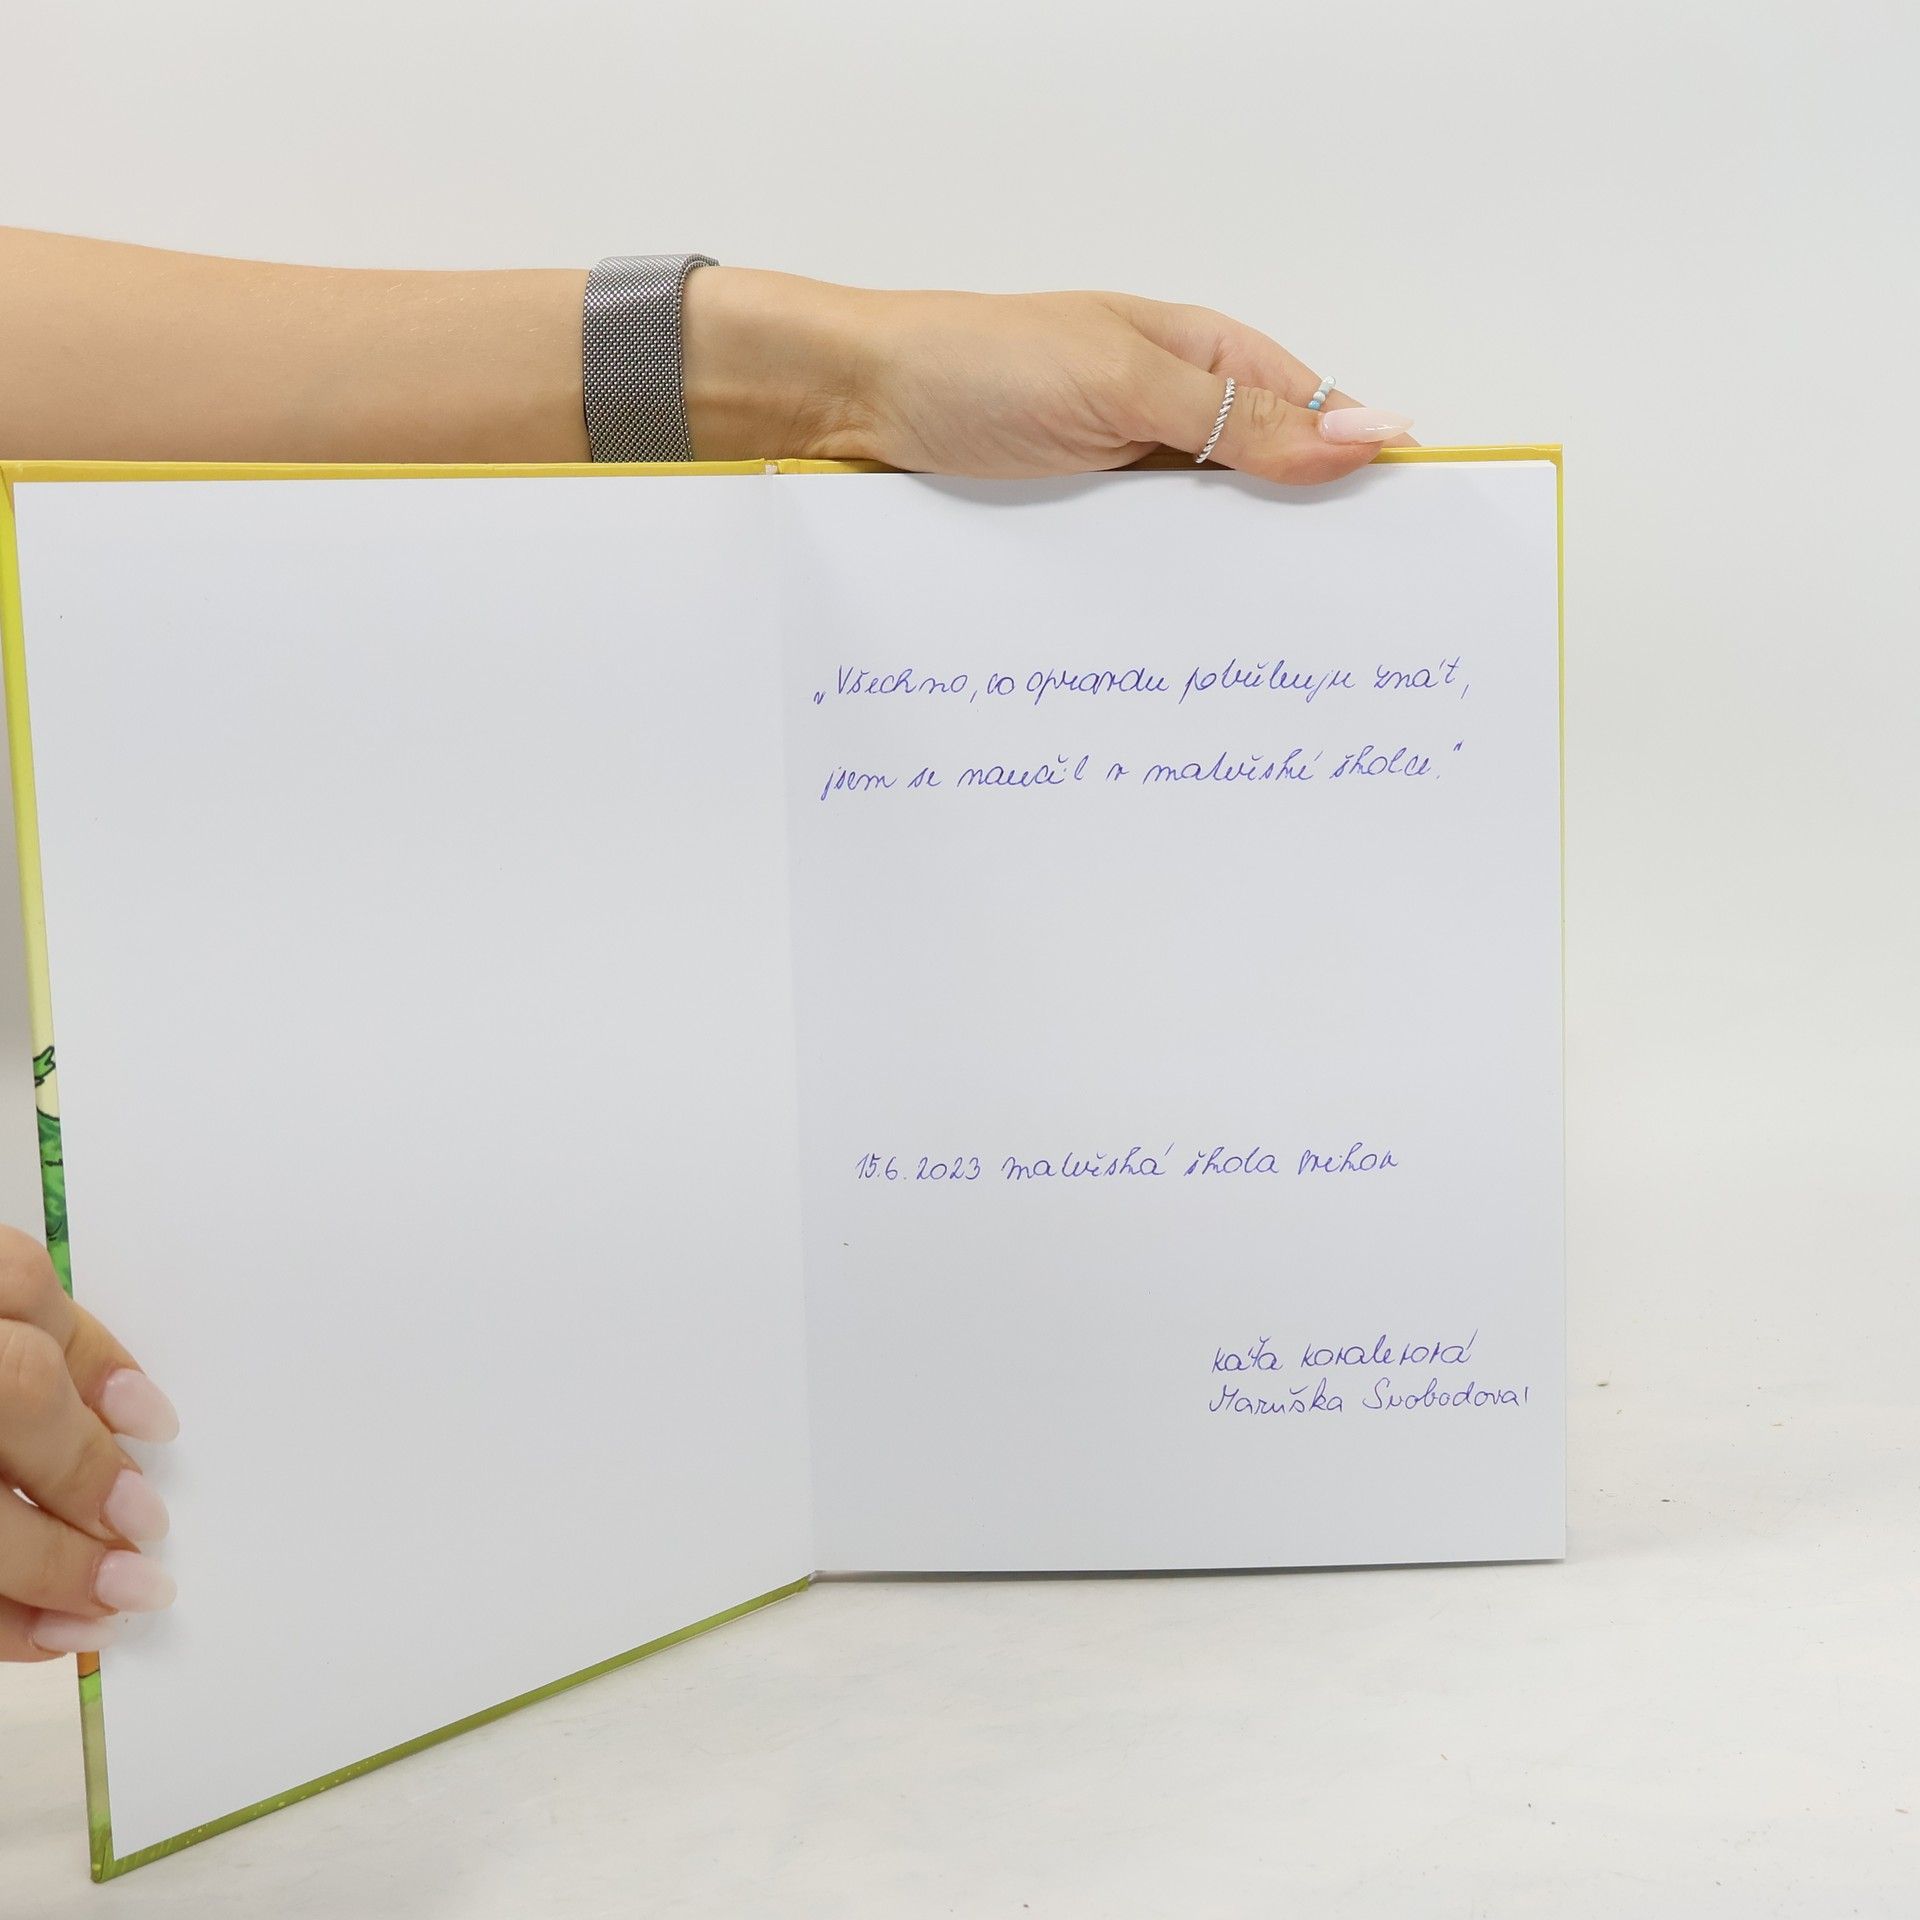 „Všechno, co opravdu potřebuju znát,
jsem se naučil v mateřské školce."
15.6.2023 mateřská škola Přehor
Káťa Kovalerová
Maruška Svobodová